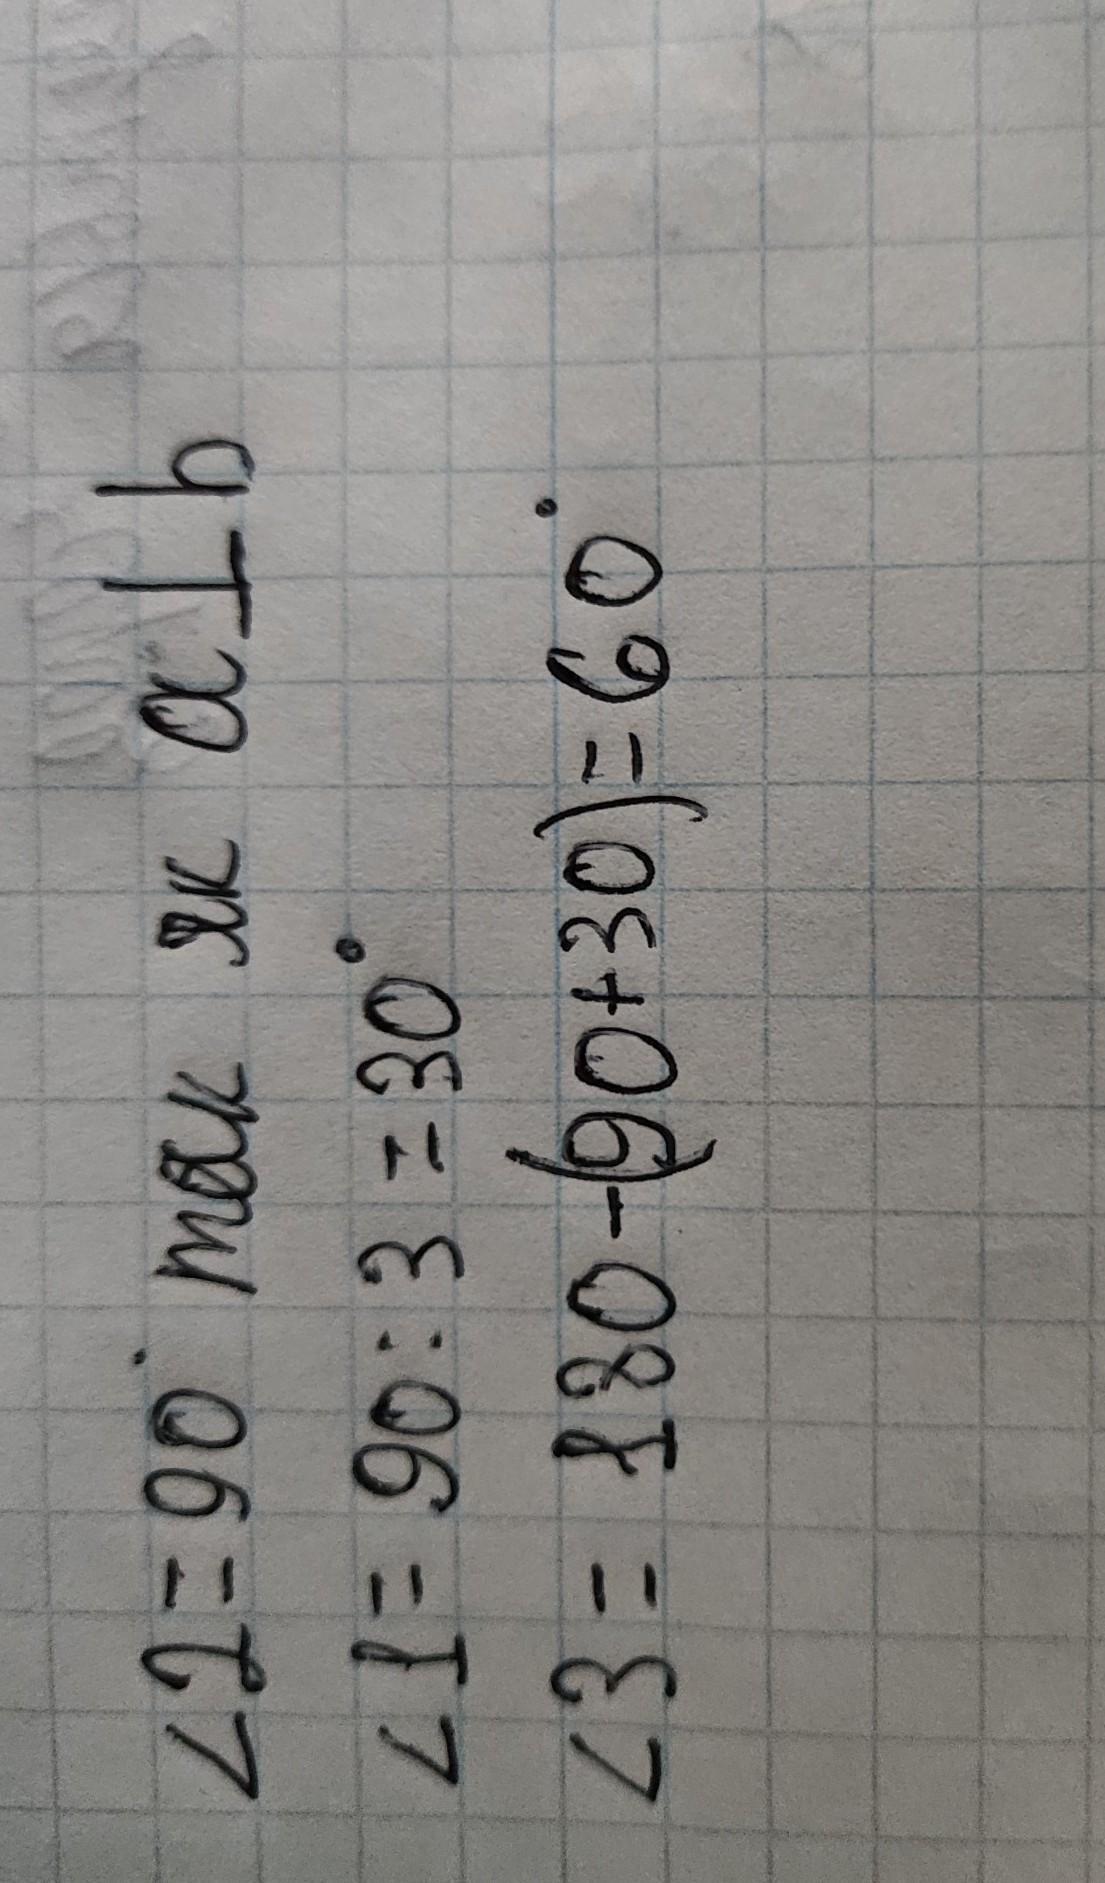 ∠2=90° так як a⊥b
∠1=90:3=30°
∠3=180-(90+30)=60°